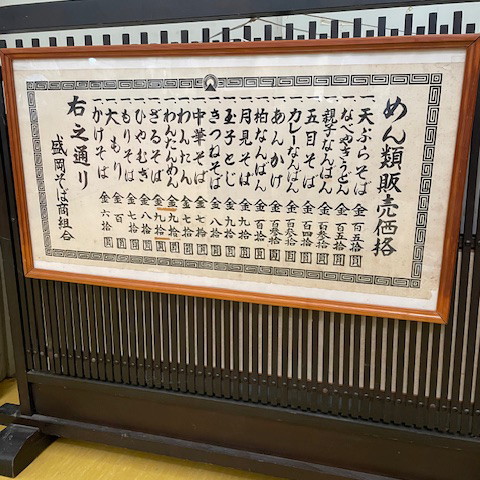 めん類販売価格
一 天ぷらそば 金 百五拾圓
一 なべやきうどん 金 百五拾圓
一 親子なんばん 金 百参拾圓
一 五目そば 金 百四拾圓
一 カレーなんばん 金 百参拾圓
一 あんかけ 金 百参拾圓
一 柏なんばん 金 百弐拾圓
一 月見そば 金 九拾圓
一 玉子とじ 金 九拾圓
一 きつねそば 金 八拾圓
一 中華そば 金 七拾圓
一 わんたん 金 七拾圓
一 わんたんめん 金 九拾圓
一 ざるそば 金 九拾圓
一 ひやむぎ 金 八拾圓
一 もりそば 金 七拾圓
一 大もり 金 百圓
一 かけそば 金 六拾圓
右之通り
盛岡そば商組合